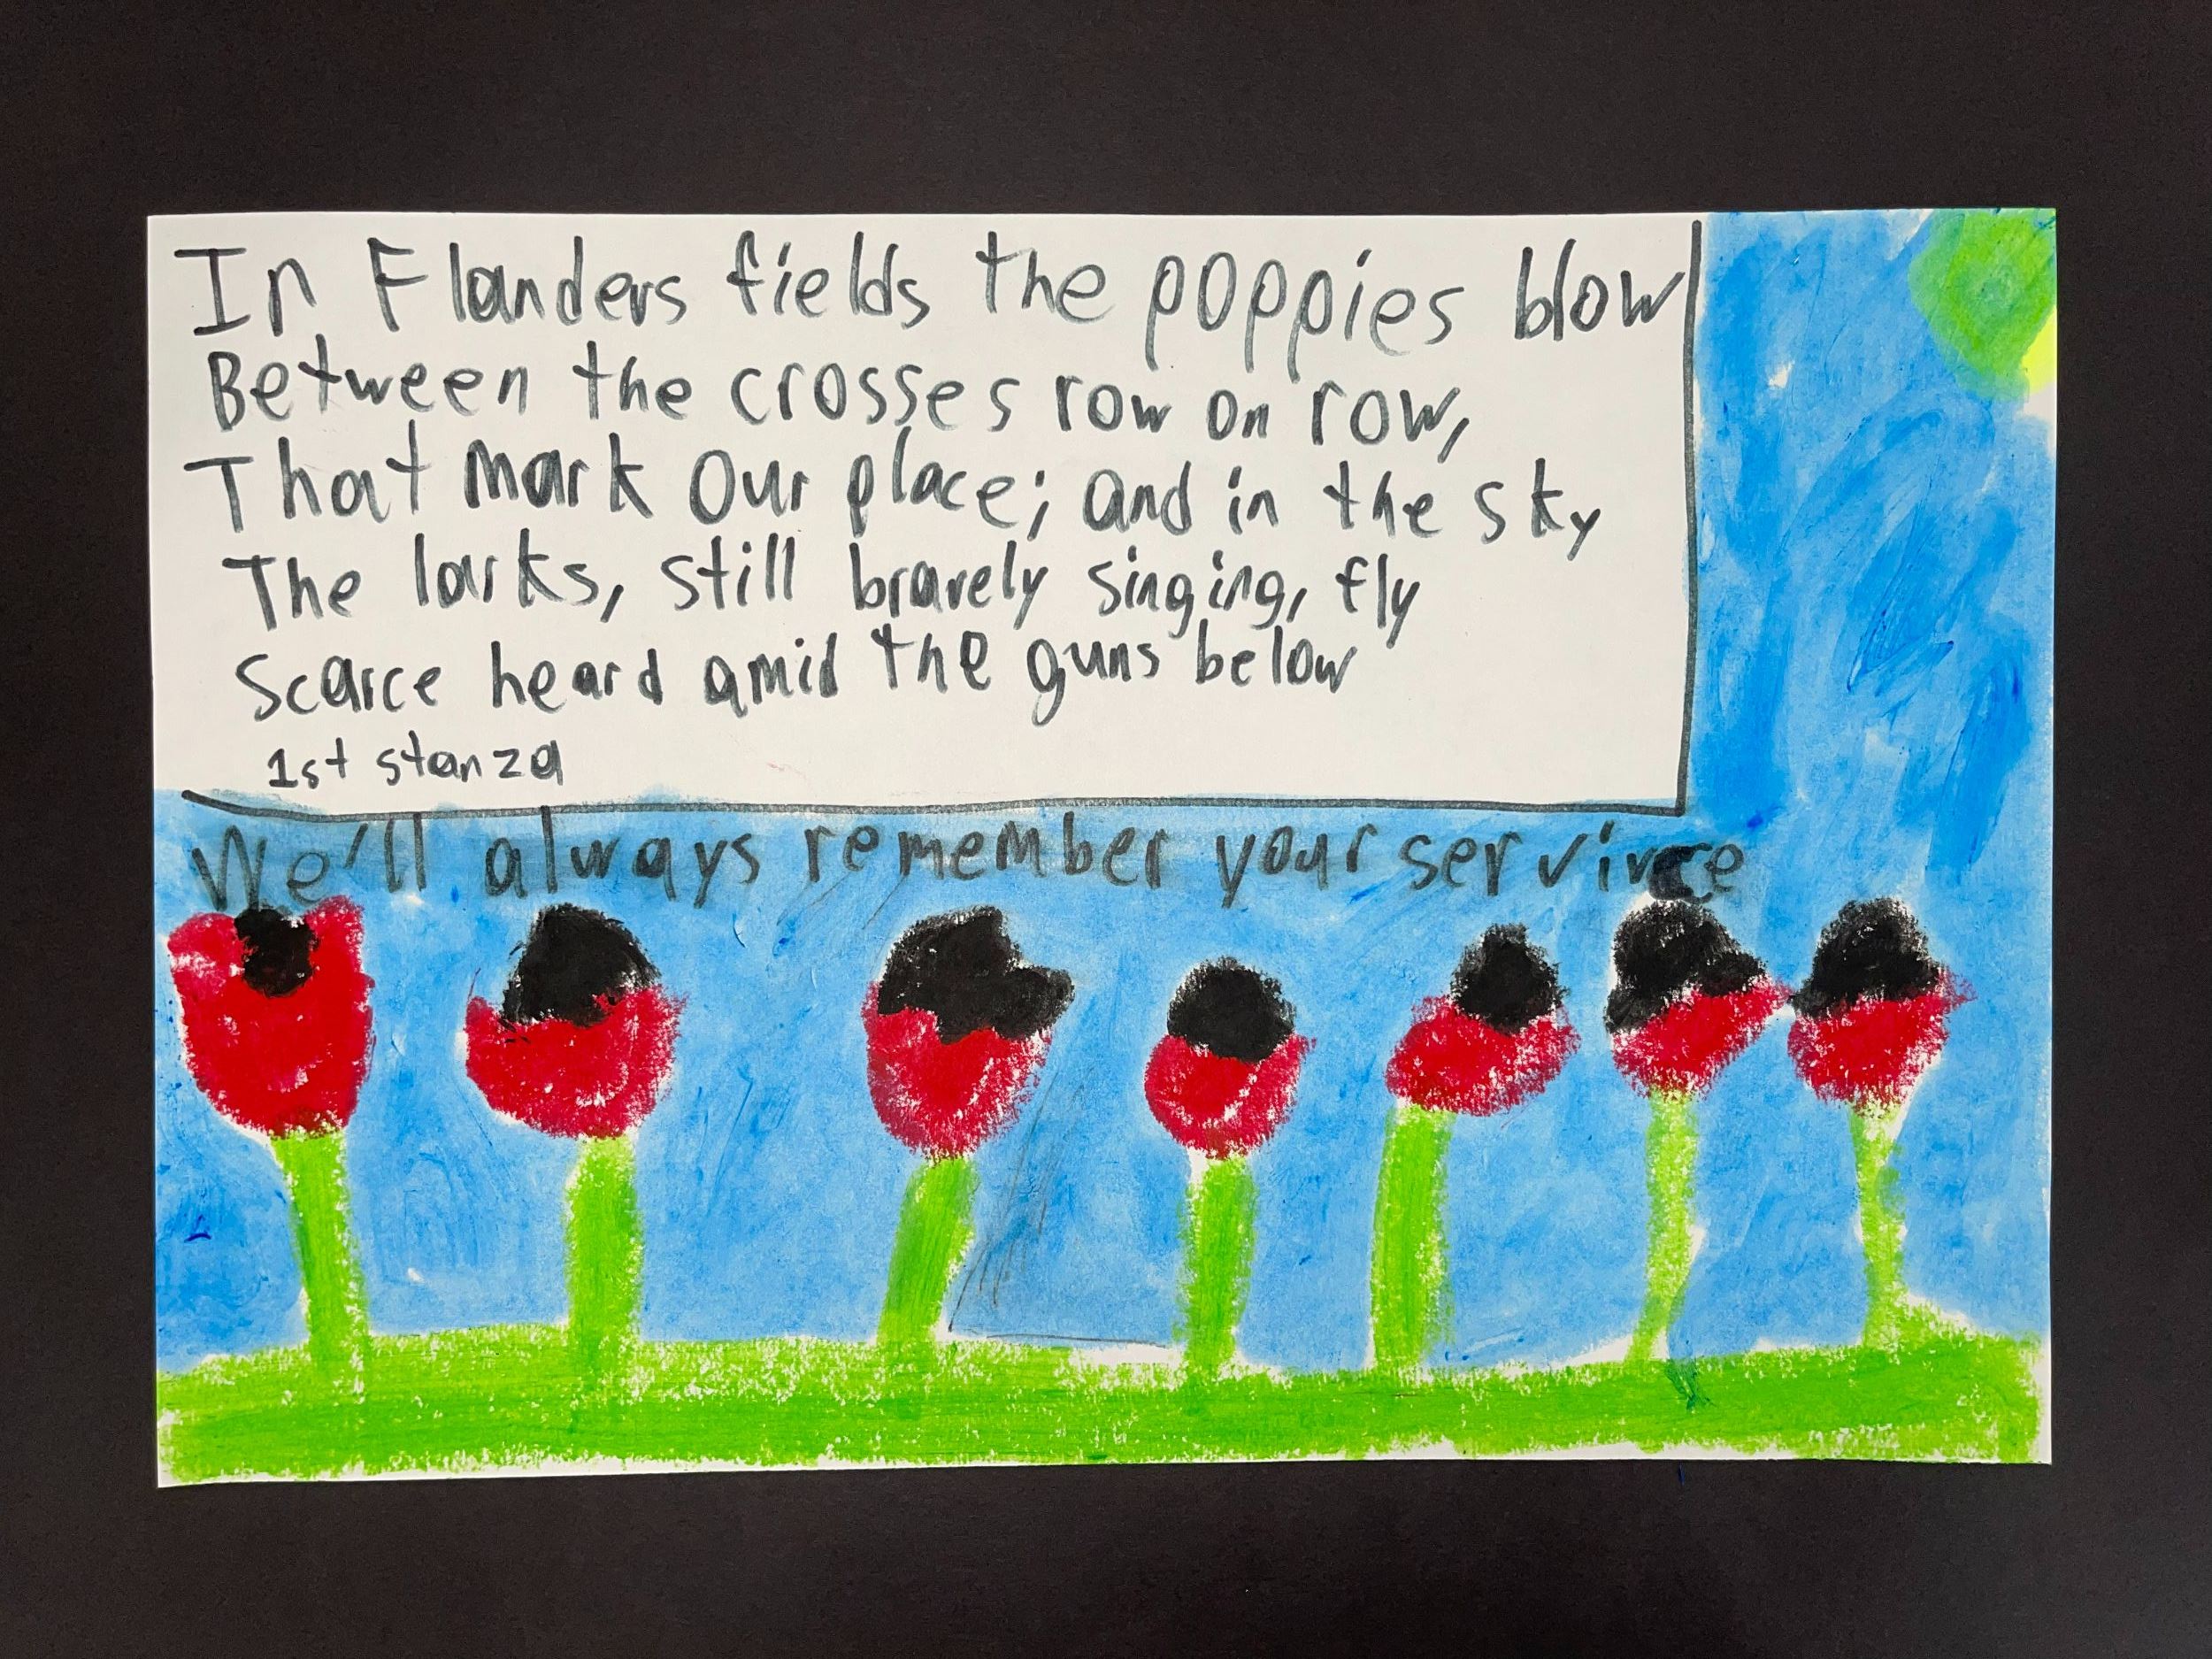 In Flanders fields the poppies blow
Between the crosses row on row,
That mark our place; and in the sky
The larks, still bravely singing, fly
Scarce heard amid the guns below
1st stanza
We'll always remember your service